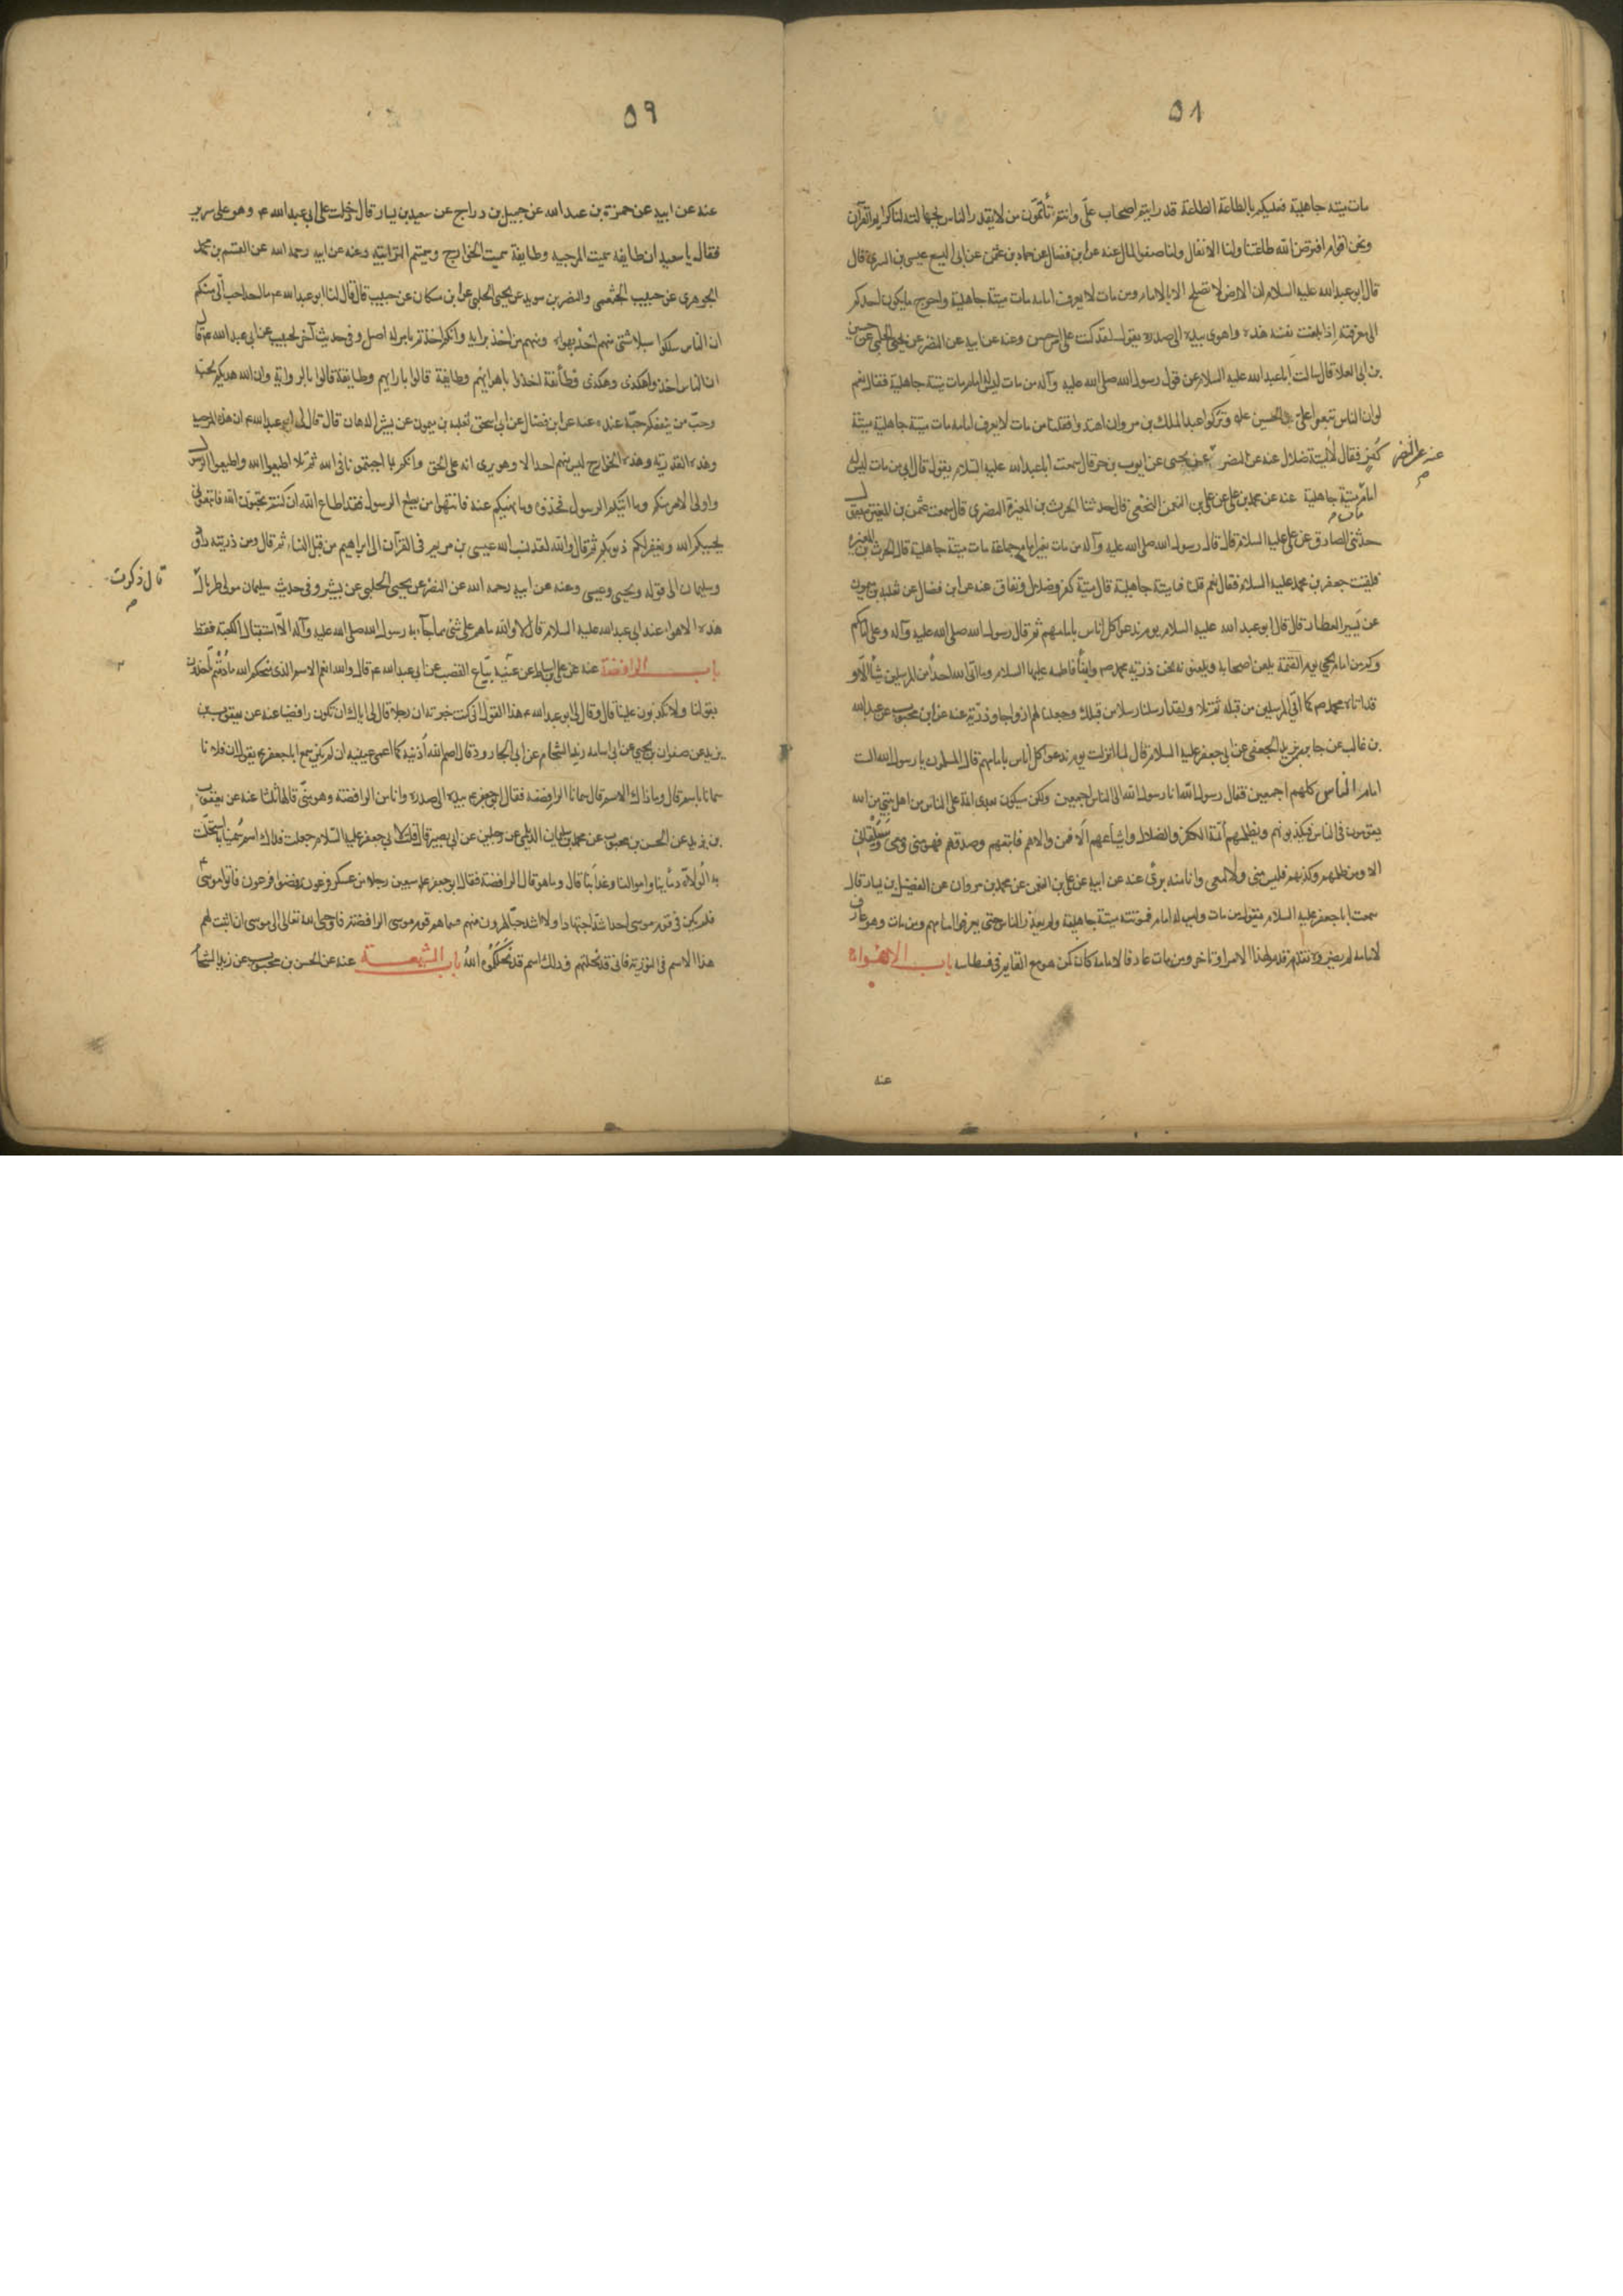 ٥٨
مات ميتة جاهلية فعليكم بالطاعة الطاعة قد رايتم اصحاب علّي وانتم تأتمّون بمن لا يعذر الناس بجهالته لنا كرايم القرآن
ونحن اقوام افترض الله طاعتنا ولنا الانفال ولنا صفو المال عنه عن ابن فضال عن حماد بن عثمن عن ابى اليسع عيسى بن السرى قال
قال ابو عبد الله عليه السلام ان الارض لا تصلح الا بالامام ومن مات لا يعرف امامه مات ميتة جاهلية واحوج ما يكون احدكم
الى معرفته اذا بلغت نفسه هذه واهوى بيده الى صدره يقول لقد كنت على امر حسن وعنه عن ابيه عن النضر عن يحيى الحلبى عن حسين
بن ابى العلا قال سالت ابا عبد الله عليه السلام عن قول رسول الله صلى الله عليه وآله من مات ليس له امام مات ميتة جاهلية فقال نعم
لو ان الناس تبعوا على بن الحسين ع وتركوا عبد الملك بن مروان اهتدوا فقلنا من مات لا يعرف امامه مات ميتة جاهلية ميتة
كفر فقال لا ميتة ضلال عنه عن النضر عن يحيى عن ايوب بن حر قال سمعت ابا عبد الله عليه السلام يقول قال ابى من مات ليس له
عنه عن النضر
امام مات ميتة جاهلية عنه عن محمد بن على عن على بن النعمن النخعى قال حدثنا الحرث بن المغيرة النضرى قال سمعت عثمن بن المغيرة يقول
حدثنى الصادق عن على عليه السلام قال قال رسول الله صلى الله عليه وآله من مات بغير امام جماعة مات ميتة جاهلية قال الحرث بن المغيره
فلقيت جعفر بن محمد عليه السلام فقال نعم قلنا فميتة جاهلية قال ميتة كفر وضلال ونفاق عنه عن ابن فضال عن ثعلبه بن ميمون
عن بشير العطار قال قال ابو عبد الله عليه السلام يوم ندعوا كل اناس بامامهم ثم قال رسول الله صلى الله عليه وآله وعلى امامكم
وكم من امام يجئ يوم القيمة يلعن اصحابه ويلعنونه نحن ذرية محمد ص وامنا فاطمه عليها السلام وما اتى الله احداً من المرسلين شيأ الّا وَ
قد اتاه محمد ص كما اتى المرسلين من قبله ثم تلا ولقد ارسلنا رسلا من قبلك وجعلنا لهم ازواجا وذرّية عنه عن ابن محبوب عن عبد الله
بن غالب عن جابر بن يزيد الجعفى عن ابى جعفر عليه السلام قال لما انزلت يوم ندعوا كل اناس بامامهم قال المسلمون يا رسول الله الست
امام الناس كلهم اجمعين فقال رسول الله انا رسول الله الى الناس اجمعين ولكن سيكون بعدى ائمة على الناس من اهل بيتى من الله
يقومون فى الناس فيكذبونهم ويظلمهم أئمة الكفر والضلال واشياعهم الا فمن والاهم فاتبعهم وصدقهم فهو منى ومعى وسيلقانى
الا ومن ظلمهم وكذبهم فليس منى ولا معى وانا منه برىٔ عنه عن ابيه عن على بن النعمن عن محمد بن مروان عن الفضيل بن يسار قال
سمعت ابا جعفر عليه السلام يقول من مات وليس له امام فموتته ميتة جاهلية ولا يعذر الناس حتى يعرفوا امامهم ومن مات وهو عارف
لامامه لم يضره تقدم هذا الامر او تاخر ومن مات عارفا لامامه كان كمن هو مع القايم فى فسطاسه باب الاهواء
عنه
٥٩
عنه عن ابيه عن حمزة بن عبد الله عن جميل بن دراج عن سعيد بن يسار قال دخلت على ابى عبد الله ع وهو على سرير
فقال يا سعيد ان طايفة سميت المرجيه وطايفة سميت الخوارج وسميتم الترابيّه وعنه عن ابيه رحمه الله عن القسم بن محمد
الجوهرى عن حبيب الخثعمى والنضر بن سويد عن يحيى الحلبى عن ابن مسكان عن حبيب قال قال لنا ابو عبد الله ع ما احد احب الّى منكم
ان الناس سلكوا سبلا شتى منهم اخذ بهواه ومنهم من اخذ برايه وانكم اخذتم بامر له اصل وفى حديث آخر لحبيب عن ابى عبد الله ع قال
ان الناس اخذوا هكذى وهكذى فطآئفة اخذوا باهوائهم وطايفة قالوا بارايهم وطايفة قالوا بالرواية وان الله هديكم لحبّه
وحبّ من ينفعكم حبّه عنده عنه عن ابن فضال عن ابى اسحق ثعلبه بن ميمون عن بشر الدهان قال قال لى ابو عبد الله ع ان هذه المرجيه
وهذه القدريّه وهذه الخوارج ليس منهم احد الا وهو يرى انه على الحق وانكم انما اجبتمونا فى الله ثم تلا اطيعوا الله واطيعوا الرسول
واولى الامر منكم وما اتيكم الرسول فخذوه وما نهيكم عنه فانتهوا من يطع الرسول فقد اطاع الله ان كنتم تحبون الله فاتبعونى
يحببكم الله ويغفر لكم ذنوبكم ثم قال والله لقد نسب الله عيسى بن مريم فى القرآن الى ابراهيم من قبل النساء ثم قال ومن ذريته داود
وسليمان الى قوله ويحيى وعيسى وعنه عن ابيه رحمه الله عن النضر عن يحيى الحلبى عن بشير وفى حديث سليمان مولى طربال
قال ذكرت
هذه الاهواء عند ابى عبد الله عليه السلام قال لا والله ما هم على شئ مما جآء به رسول الله صلى الله عليه وآله الّا استقبال الكعبة فقط
باب الرافضة عنه عن على بن اسباط عن عتيبه بيّاع القصب عن ابى عبد الله ع قال والله لنعم الاسم الذى منحكم الله ما دمتم تأخذون
بقولنا ولا تكذبون علينا قال وقال لى ابو عبد الله ع هذا القول انى كنت خبرته ان رجلا قال لى اياك ان تكون رافضيا عنه عن يعقوب بن
يزيد عن صفوان بن يحيى عن ابى اسامه زيد الشحام عن ابى الجارود قال اصم الله اذنيه كما اعمى عينيه ان لم يكن سمع ابا جعفر ع يقول ان فلانا
سمانا باسم قال وما ذاك الاسم قال سمانا الرافضه فقال ابو جعفر ع بيده الى صدره وانا من الرافضة وهو منّى قالها ثلثا عنه عن يعقوب
بن يزيد عن الحسن بن محبوب عن محمد بن سليمان الديلمى عن رجلين عن ابى بصير قال قلت لابى جعفر عليه السلام جعلت فداك اسم سُمّينا به استحلّت
به الوُلاة دمأينا واموالنا وعذابنا قال وما هو قال الرافضة فقال ابو جعفر ع ان سبعين رجلا من عسكر فرعون رفضوا فرعون فاتوا موسىٰ
فلم يكن فى قوم موسى احد اشد اجتهادا ولا اشد حبّا لهرون منهم فسماهم قوم موسى الرافضة فاوحى الله تعالى الى موسى ان اثبت لهم
هذا الاسم فى التورية فانى قد نحلتهم وذلك اسم قد نحلكموه اللهُ باب الشيعة عنه عن الحسن بن محبوب عن زيد الشحام